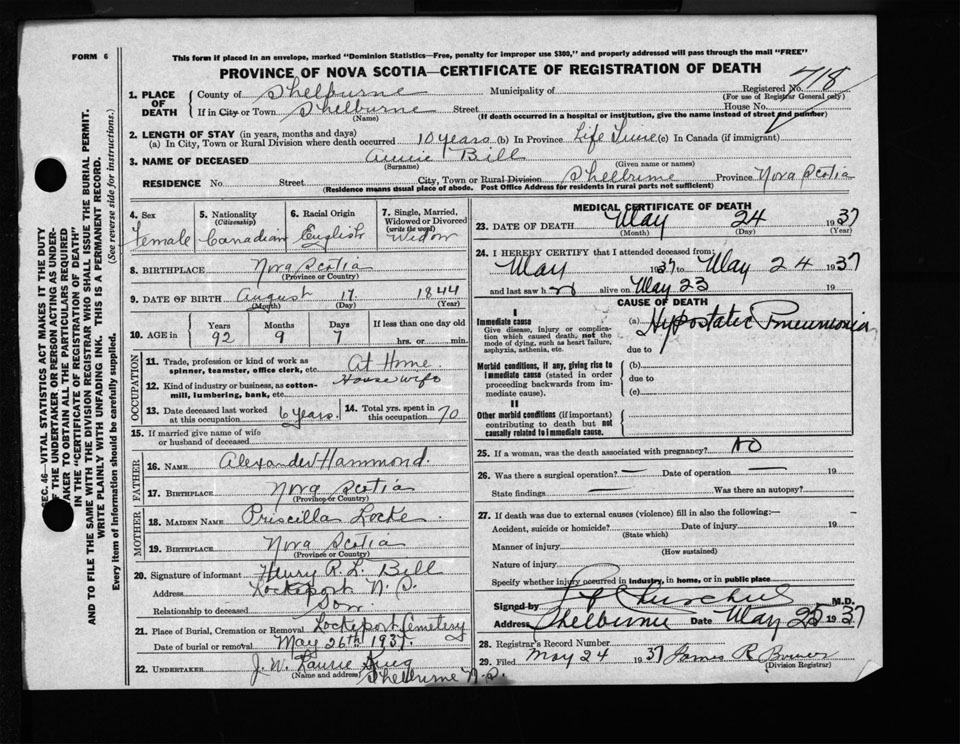 FORM 6
This form if placed in an envelope, marked "Dominion Statistics—Free, penalty for improper use $300," and properly addressed will pass through the mail "FREE"
PROVINCE OF NOVA SCOTIA—CERTIFICATE OF REGISTRATION OF DEATH
SEC. 46—VITAL STATISTICS ACT MAKES IT THE DUTY
OF THE UNDERTAKER OR PERSON ACTING AS UNDER-
TAKER TO OBTAIN ALL THE PARTICULARS REQUIRED
IN THE "CERTIFICATE OF REGISTRATION OF DEATH"
AND TO FILE THE SAME WITH THE DIVISION REGISTRAR WHO SHALL ISSUE THE BURIAL PERMIT.
WRITE PLAINLY WITH UNFADING INK. THIS IS A PERMANENT RECORD.
Every item of Information should be carefully supplied. (See reverse side for instructions.)
1. PLACE OF DEATH
County of Shelburne Municipality of Registered No. 718
(For use of Registrar General only)
If in City or Town Shelburne Street House No.
(Name) (If death occurred in a hospital or institution, give the name instead of street and number)
2. LENGTH OF STAY (in years, months and days)
(a) In City, Town or Rural Division where death occurred 10 years (b) In Province Life Time (c) In Canada (if immigrant)
3. NAME OF DECEASED Annie Bill
(Surname) (Given name or names)
RESIDENCE No. Street City, Town or Rural Division Shelburne Province Nova Scotia
(Residence means usual place of abode. Post Office Address for residents in rural parts not sufficient)
4. Sex 5. Nationality (Citizenship) 6. Racial Origin 7. Single, Married, Widowed or Divorced (write the word)
Female Canadian English Widow
8. BIRTHPLACE Nova Scotia
(Province or Country)
9. DATE OF BIRTH August 17 1844
(Month) (Day) (Year)
10. AGE in Years Months Days If less than one day old
92 9 7 hrs. or min.
OCCUPATION
11. Trade, profession or kind of work as spinner, teamster, office clerk, etc. At Home
12. Kind of industry or business, as cotton-mill, lumbering, bank, etc. Housewife
13. Date deceased last worked at this occupation 6 years. 14. Total yrs. spent in this occupation 70
15. If married give name of wife or husband of deceased
FATHER
16. NAME Alexander Hammond.
17. BIRTHPLACE Nova Scotia
(Province or Country)
MOTHER
18. MAIDEN NAME Priscilla Locke
19. BIRTHPLACE Nova Scotia
(Province or Country)
20. Signature of informant Henry R. L. Bill
Address Lockeport N. S.
Relationship to deceased Son
21. Place of Burial, Cremation or Removal Lockeport Cemetery
Date of burial or removal May 26th 1937.
22. UNDERTAKER J. W. Laurie King
(Name and address) Shelburne N.S.
MEDICAL CERTIFICATE OF DEATH
23. DATE OF DEATH May 24 1937
(Month) (Day) (Year)
24. I HEREBY CERTIFY that I attended deceased from:
May 1937 to May 24 1937
and last saw h er alive on May 23 19
CAUSE OF DEATH
I
Immediate cause (a) Hypostatic Pneumonia
Give disease, injury or complication which caused death, not the mode of dying, such as heart failure, asphyxia, asthenia, etc.
due to
Morbid conditions, if any, giving rise to immediate cause (stated in order proceeding backwards from immediate cause).
(b)
due to
(c)
II
Other morbid conditions (if important) contributing to death but not causally related to immediate cause.
25. If a woman, was the death associated with pregnancy? NO
26. Was there a surgical operation? — Date of operation — 19
State findings — Was there an autopsy?
27. If death was due to external causes (violence) fill in also the following:—
Accident, suicide or homicide? Date of injury 19
(State which)
Manner of injury
(How sustained)
Nature of injury
Specify whether injury occurred in industry, in home, or in public place
Signed by Churchill M.D.
Address Shelburne Date May 25 1937
28. Registrar's Record Number
29. Filed May 24 1937 James R Bower
(Division Registrar)